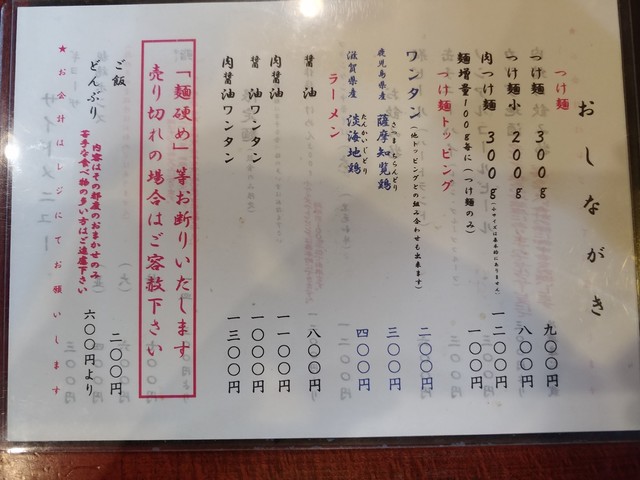 おしながき
つけ麺
つけ麺 300g 九〇〇円
つけ麺小 200g 八〇〇円
肉つけ麺 300g (小サイズは基本的にありません) 一二〇〇円
麺増量100g毎に(つけ麺のみ) 一〇〇円
つけ麺トッピング
ワンタン (他トッピングとの組み合わせも出来ます) 二〇〇円
鹿児島県産 薩摩知覧鶏 さつま ちらんどり 三〇〇円
滋賀県産 淡海地鶏 たんかいじどり 四〇〇円
ラーメン
醤油 八〇〇円
肉醤油 一一〇〇円
醤油ワンタン 一〇〇〇円
肉醤油ワンタン 一三〇〇円
「麺硬め」等お断りいたします
売り切れの場合はご容赦下さい
ご飯 二〇〇円
どんぶり 六〇〇円より
内容はその都度のおまかせのみ
苦手な食べ物の多い方はご遠慮下さい
★お会計はレジにてお願いします
サイドメニュー